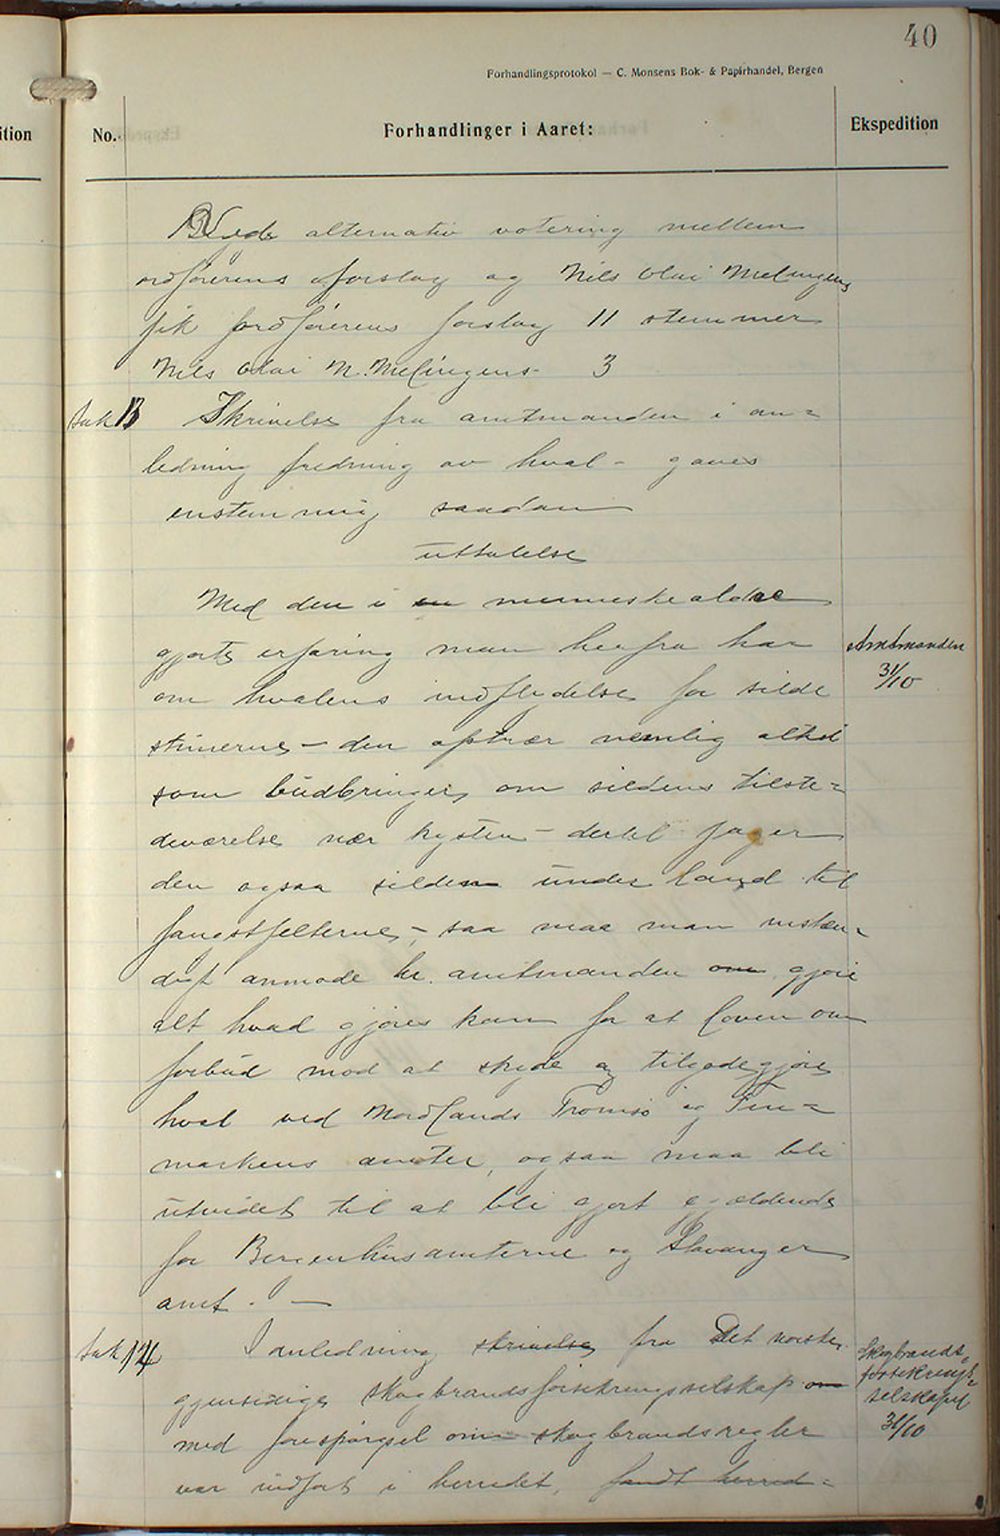 40
Forhandlingsprotokol — C. Monsens Bok- & Papirhandel, Bergen
ition
No.
Forhandlinger i Aaret:
Ekspedition
Ved alternativ votering mellem
ordførerens forslag og Nils Olai Melingens
fik ordførerens forslag 11 stemmer
Nils Olai M. Melingens - 3
Sak 13 Skrivelse fra amtmanden i an=
ledning fredning av hval - gaves
enstemmig saadan
uttalelse
Med den i en menneskealder
gjorte erfaring man herfra har
om hvalens indflydelse for silde
stimerne - den optrær nemlig altid
som budbringer om sildens tilste=
deværelse nær kysten - dertil jager
den ogsaa silden under land til
fangstfelterne -, saa maa man instæn=
digt anmode hr. amtmanden om gjøre
alt hvad gjøres kan for at loven om
forbud mod at skyde og tilgodegjøre
hval ved Nordlands Tromsø og Fin=
markens amter, ogsaa maa bli
utvidet til at bli gjort gjældende
for Bergenhusamterne og Stavanger
amt. -
Amtmanden
31/10
Sak 14 I anledning skrivelse fra Det norske
gjensidige skogbrandsforsikringsselskap om
med forespørgsel om skogbrandsregler
var indført i herredet, fandt herred=
Skogbrands=
forsikrings=
selskapet
31/10